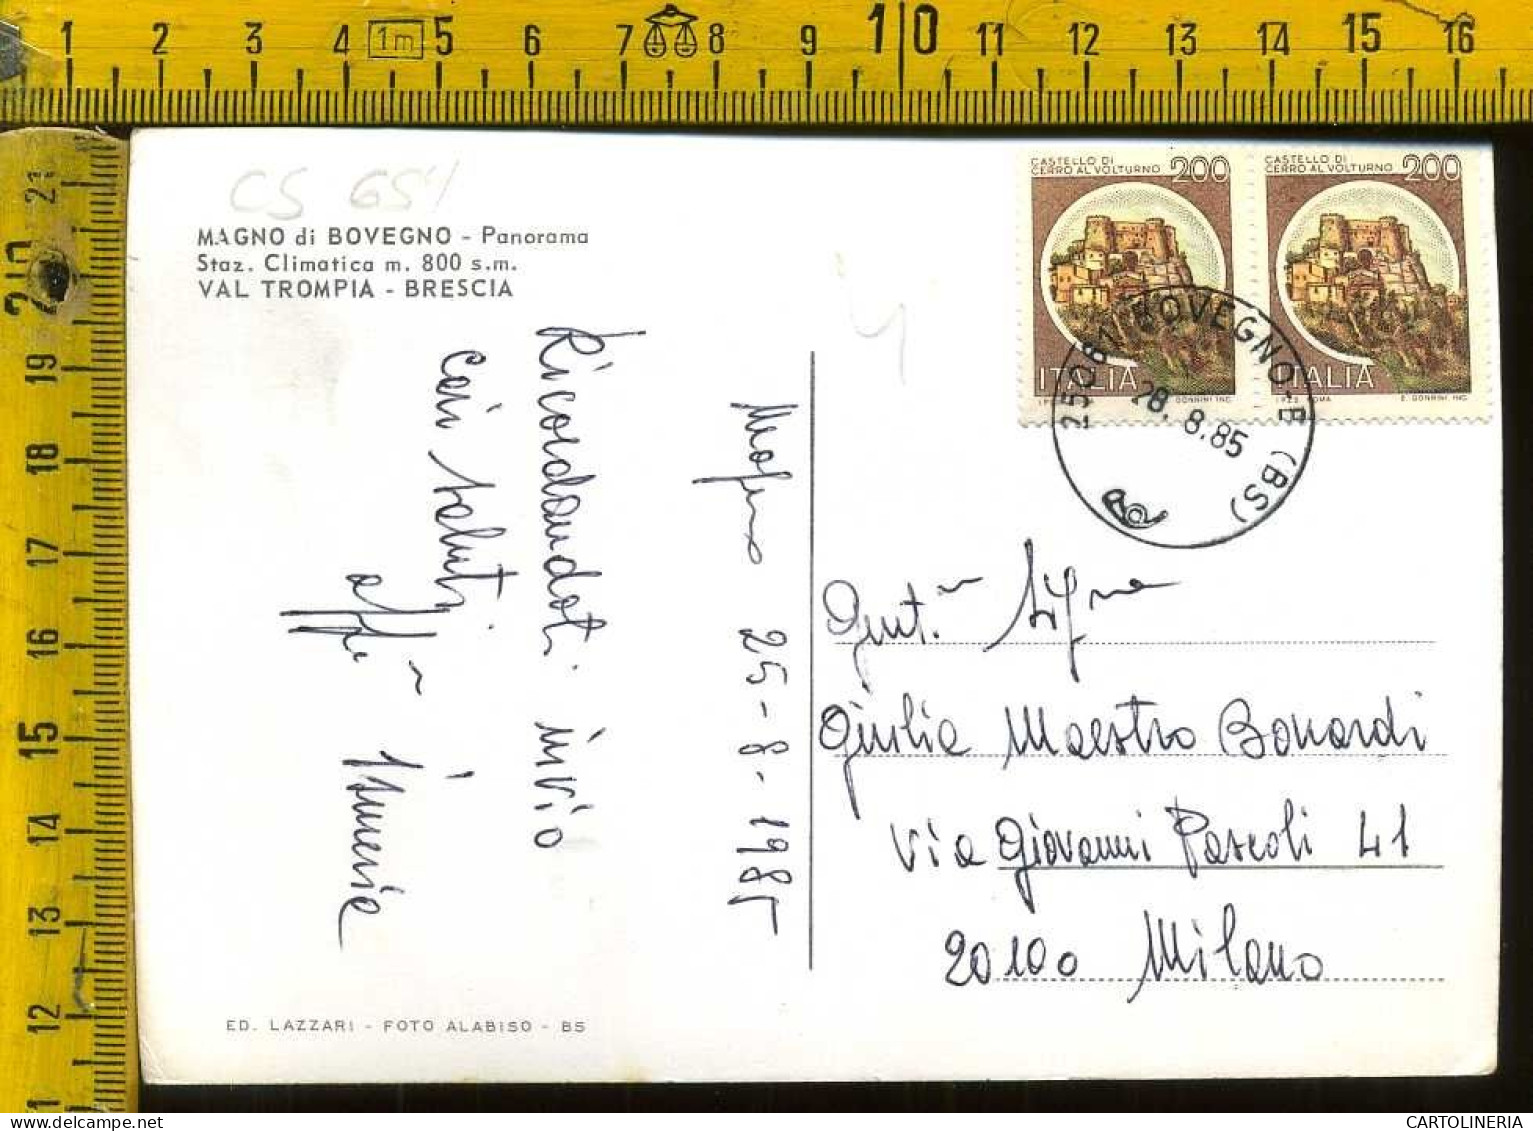 1 2 3 4 1m 5 6 7 8 9 10 11 12 13 14 15 16
21
20
19
18
17
16
15
14
13
12
CS 651
MAGNO di BOVEGNO - Panorama
Staz. Climatica m. 800 s.m.
VAL TROMPIA - BRESCIA
CASTELLO DI
CERRO AL VOLTURNO 200
ITALIA
CASTELLO DI
CERRO AL VOLTURNO 200
ITALIA
I.P.Z.S. ROMA E. DONNINI INC.
25061 BOVEGNO-B (BS)
28.8.85
Magno 25-8-1985
Ricordandoti invio
cari saluti
aff.ma Ismenia
Gent.ma Sig.ra
Giulia Maestro Bonardi
Via Giovanni Pascoli 41
20100 Milano
ED. LAZZARI - FOTO ALABISO - BS
CARTOLINERIA